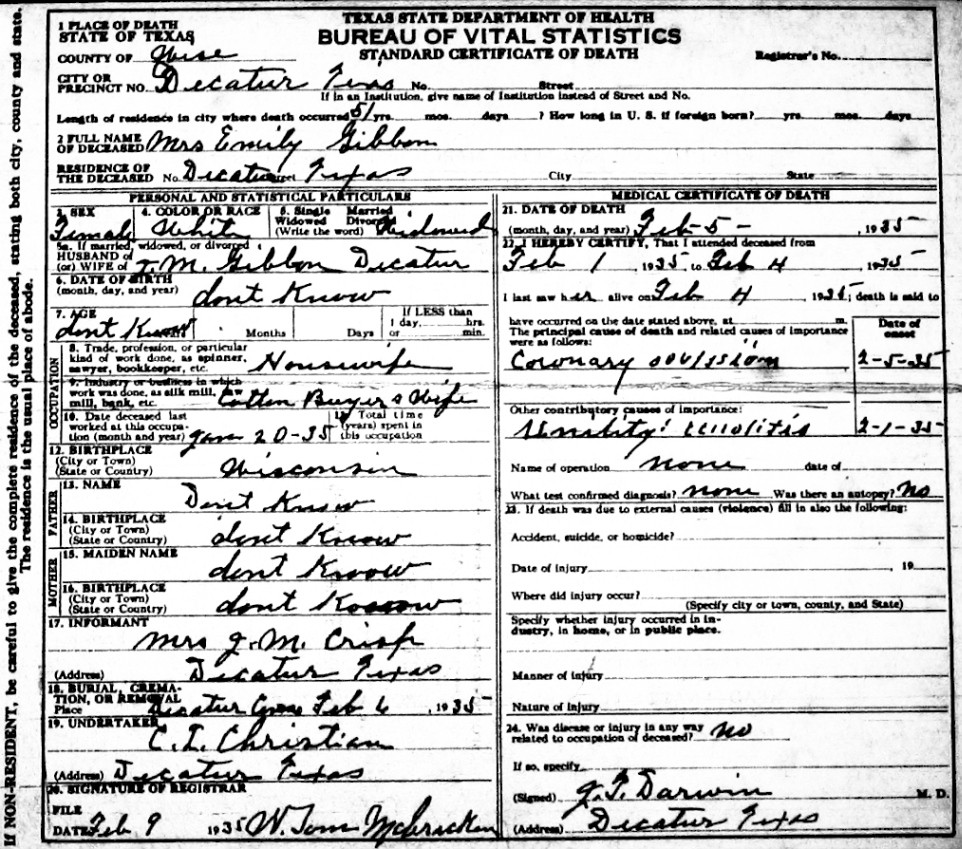 TEXAS STATE DEPARTMENT OF HEALTH
BUREAU OF VITAL STATISTICS
STANDARD CERTIFICATE OF DEATH
Registrar's No.
1 PLACE OF DEATH
STATE OF TEXAS
COUNTY OF Wise
CITY OR PRECINCT NO. Decatur Texas No. Street
If in an Institution, give name of Institution instead of Street and No.
Length of residence in city where death occurred 51 yrs. mos. days ? How long in U. S. if foreign born? yrs. mos. days
2 FULL NAME OF DECEASED Mrs Emily Gibbon
RESIDENCE OF THE DECEASED No. Decatur Street Texas City State
PERSONAL AND STATISTICAL PARTICULARS
3. SEX Female
4. COLOR OR RACE White
5. Single Married Widowed Divorced (Write the word) Widowed
5a. If married, widowed, or divorced
HUSBAND of
(or) WIFE of J. M. Gibbon Decatur
6. DATE OF BIRTH
(month, day, and year) dont Know
7. AGE dont Know Months Days
If LESS than 1 day, hrs. or min.
OCCUPATION
8. Trade, profession, or particular
kind of work done, as spinner,
sawyer, bookkeeper, etc. Housewife
9. Industry or business in which
work was done, as silk mill, saw
mill, bank, etc. Cotton Buyers Wife
10. Date deceased last
worked at this occupa-
tion (month and year) Jan 20-35
11. Total time
(years) spent in
this occupation
12. BIRTHPLACE
(City or Town)
(State or Country) Wisconsin
FATHER
13. NAME Dont Know
14. BIRTHPLACE
(City or Town)
(State or Country) dont Know
MOTHER
15. MAIDEN NAME dont Know
16. BIRTHPLACE
(City or Town)
(State or Country) dont Know
17. INFORMANT
Mrs J. M. Crisp
(Address) Decatur Texas
18. BURIAL, CREMA-
TION, OR REMOVAL
Place Decatur Feb 6, 1935
19. UNDERTAKER
C. L. Christian
(Address) Decatur Texas
20. SIGNATURE OF REGISTRAR
FILE
DATE Feb 9 1935 W. Tom McCracken
MEDICAL CERTIFICATE OF DEATH
21. DATE OF DEATH
(month, day, and year) Feb-5-, 1935
22. I HEREBY CERTIFY, That I attended deceased from
Feb 1, 1935, to Feb 4, 1935
I last saw her alive on Feb 4 1935; death is said to
have occurred on the date stated above, at m.
The principal cause of death and related causes of importance
were as follows:
Date of onset
Coronary 2-5-35
Other contributory causes of importance:
2-1-35
Name of operation none date of
What test confirmed diagnosis? none Was there an autopsy? No
23. If death was due to external causes (violence) fill in also the following:
Accident, suicide, or homicide?
Date of injury 19
Where did injury occur?
(Specify city or town, county, and State)
Specify whether injury occurred in in-
dustry, in home, or in public place.
Manner of injury
Nature of injury
24. Was disease or injury in any way
related to occupation of deceased? No
If so, specify
(Signed) J. F. Darwin M. D.
(Address) Decatur Texas
If NON-RESIDENT, be careful to give the complete residence of the deceased, stating both city, county and state.
The residence is the usual place of abode.